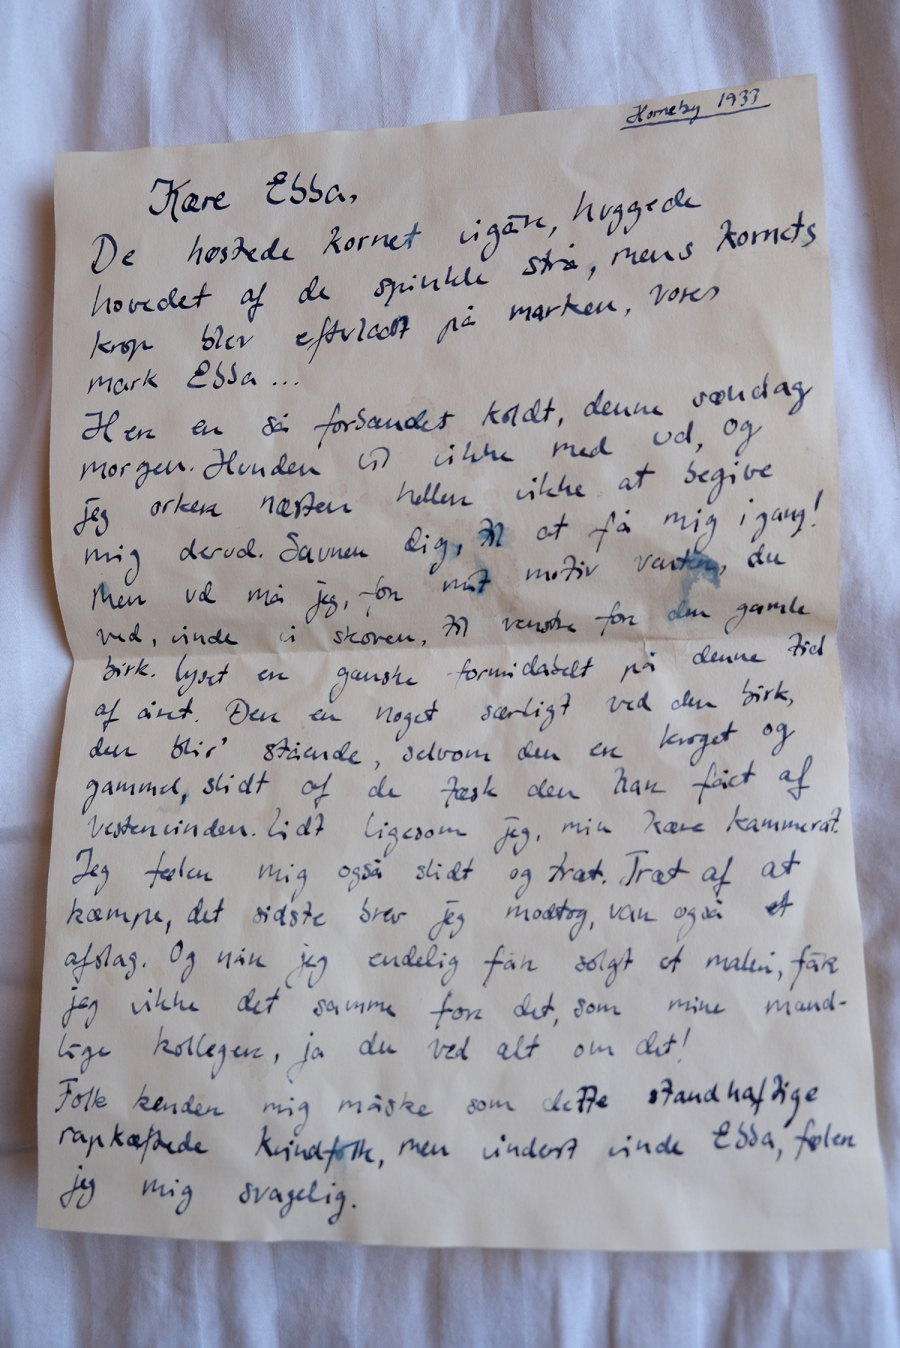 Horneby 1933
Kære Ebba,
De høstede kornet igår, huggede
hovedet af de spinkle strå, mens kornets
krop blev efterladt på marken, vores
mark Ebba...
Her er så forbandet koldt, denne søndag
morgen. Hunden vil ikke med ud, og
jeg orker næsten heller ikke at begive
mig derud. Savner dig, til at få mig igang!
Men ud må jeg, for mit motiv venter, du
ved, inde i skoven, til venstre for den gamle
birk. Lyset er ganske formidabelt på denne tid
af året. Der er noget særligt ved den birk,
den blir' stående, selvom den er kroget og
gammel, slidt af de tæsk den har fået af
vestenvinden. Lidt ligesom jeg, min kære kammerat.
Jeg føler mig også slidt og træt. Træt af at
kæmpe, det sidste brev jeg modtog, var også et
afslag. Og når jeg endelig får solgt et maleri, får
jeg ikke det samme for det, som mine mand-
lige kolleger, ja du ved alt om det!
Folk kender mig måske som dette standhaftige
rapkæftede kvindfolk, men inderst inde Ebba, føler
jeg mig svagelig.